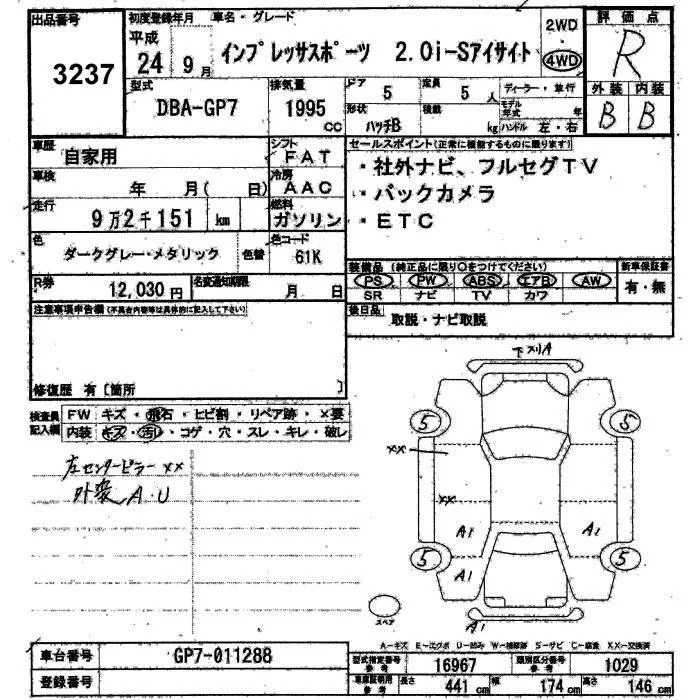 出品番号
3237
初度登録年月
車名・グレード
平成
24 9月
インプレッサスポーツ 2.0i-Sアイサイト
2WD
4WD
評価点
R
型式
DBA-GP7
排気量
1995
cc
ドア
5
定員
5人
形状
ハッチB
積載
kg
ディーラー・並行
モデル年式
年
ハンドル 左・右
外装 内装
B B
車歴
自家用
シフト
FAT
車検
年 月( 日)
冷房
AAC
走行
9万2千151 km
燃料
ガソリン
色
ダークグレー・メタリック
色替
色コード
61K
R券
12,030円
名変通知期限
月 日
セールスポイント(正常に機能するものに限ります)
・社外ナビ、フルセグTV
・バックカメラ
・ETC
装備品(純正品に限り○をつけてください)
新車保証書
PS PW ABS エアB AW
有・無
SR ナビ TV カワ
後日品
取説・ナビ取説
注意事項申告欄(不具合内容等は具体的に記入して下さい)
修復歴 有〔箇所 〕
検査員記入欄
FW キズ・飛石・ヒビ割・リペア跡・×要
内装 キズ・汚レ・コゲ・穴・スレ・キレ・破レ
左センターピラー ××
外装 A・U
下スリA
5 5
××
××
A1 A1
5 5
A1
A1
スペア
A-キズ E-エクボ U-凹み W-補修跡 S-サビ C-腐食 XX-交換済
車台番号
GP7-011288
登録番号
型式指定番号
参考
16967
類別区分番号
参考
1029
車庫証明用
参考
長さ 441cm
幅 174cm
高さ 146cm